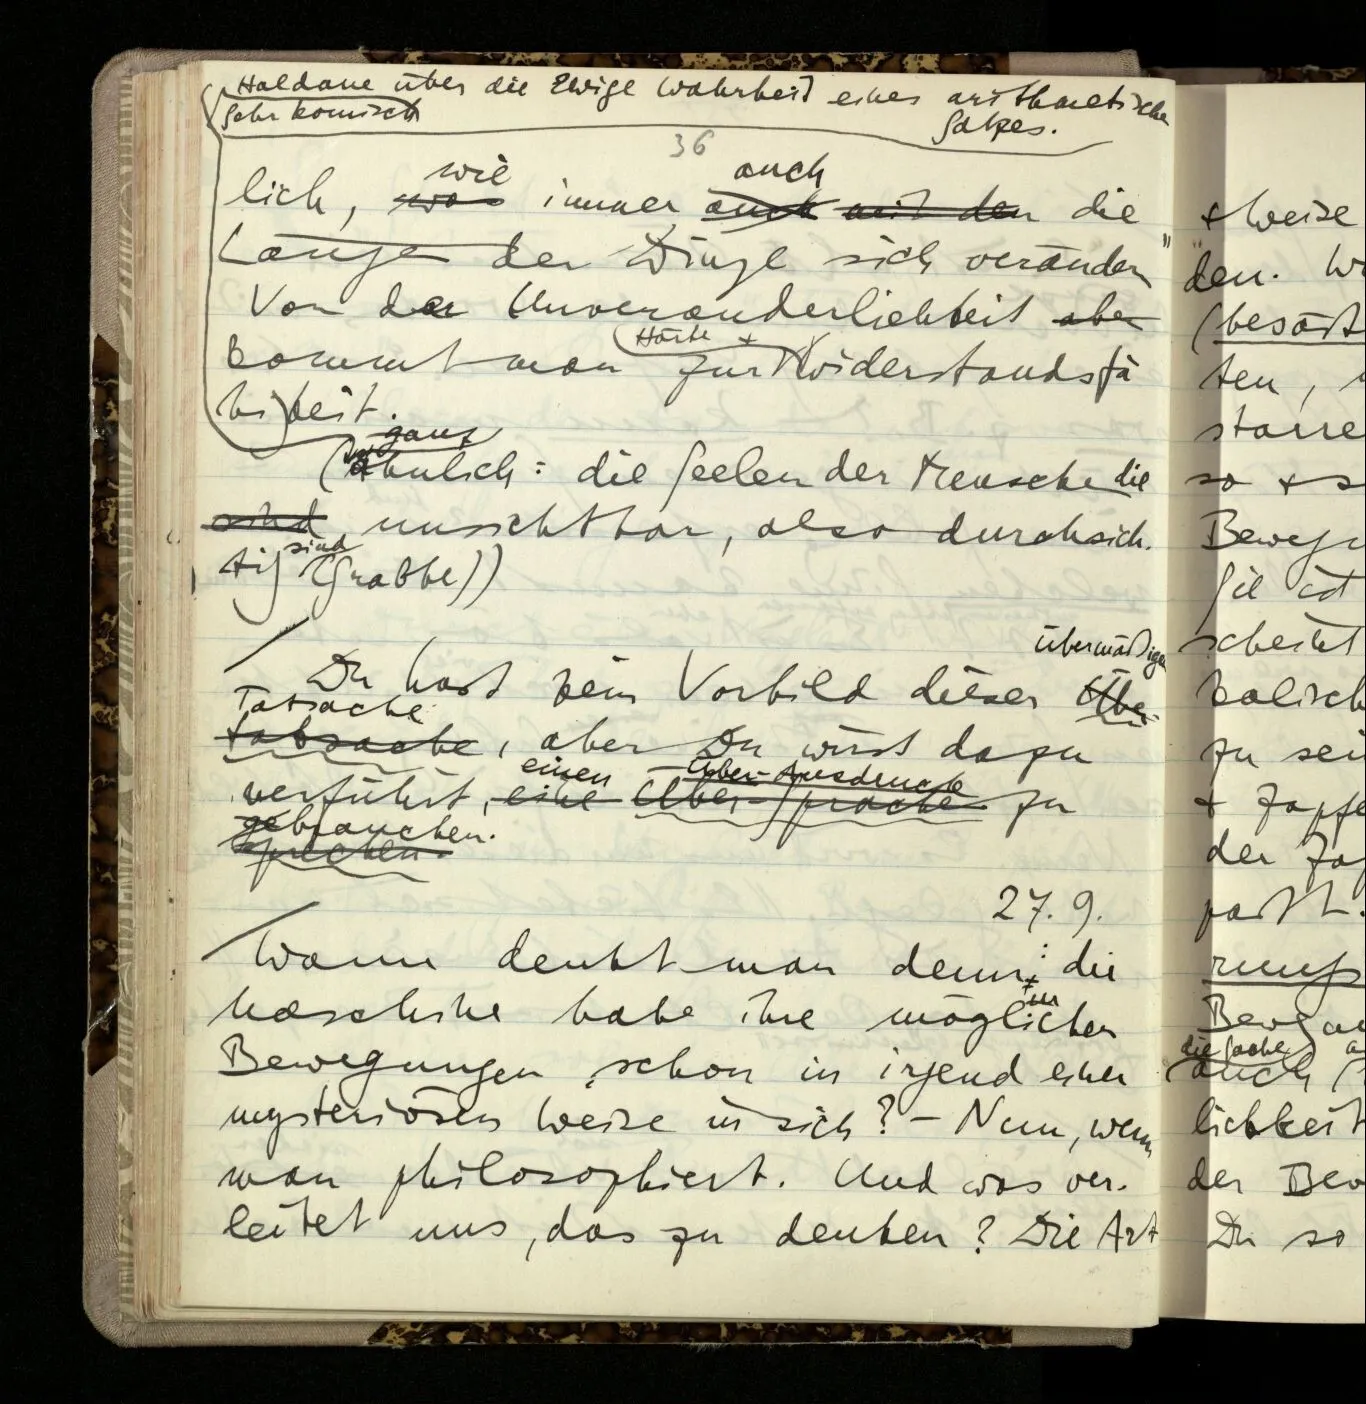 Haldane über die Ewige Wahrheit eines arithmetischen
Sehr komisch
Satzes.
36
wie auch
lich, was immer auch mit den die
Länge der Dinge sich verändern"
Von der Unveränderlichkeit aber
Härte +
kommt man zur Widerstandsfä
higkeit.
ganz
(ähnlich: die Seelen der Menschen die
sind unsichtbar, also durchsich-
sind
tig (Grabbe))
übermäßigen
Du hast kein Vorbild dieser Über-
Tatsache
tatsache, aber Du wirst dazu
einen Über-Ausdruck
verführt, eine Über-Sprache zu
gebrauchen.
sprechen.
27. 9.
Wann denkt man denn: die
Maschine habe ihre möglichen
Bewegungen schon in irgend einer
mysteriösen Weise in sich? – Nun, wenn
man philosophiert. Und was ver-
leitet uns, das zu denken? Die Art
+ Weise
den.
(besäß
ten,
starre
so + s
Bewegu
Sie ist
scheint
kalisch
zu sei
+ Zapfe
der Za
paßt.
rung
Bewegu
die Sache
auch
lichkeit
der Bew
Du so